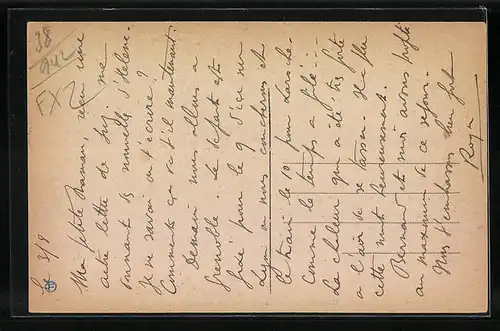 Le 3/8
Ma petite maman, reçu une
autre lettre de Guy me
donnant des nouvelles d'Hélène.
Je vais t'écrire ?
Comment ça va-t-il maintenant.
Demain nous allons à
Grenoble. Le départ est
fixé pour le 9 d'ici sur
Lyon où nous coucherons et
le train le 10 pour Laroche.
Comme le temps a filé ...
La chaleur qui a été très forte
a l'air de se tasser. Il a plu
cette nuit heureusement.
Bernard et moi avons profité
au maximum de ce séjour.
Nous t'embrassons bien fort
Roger
38
942
FX